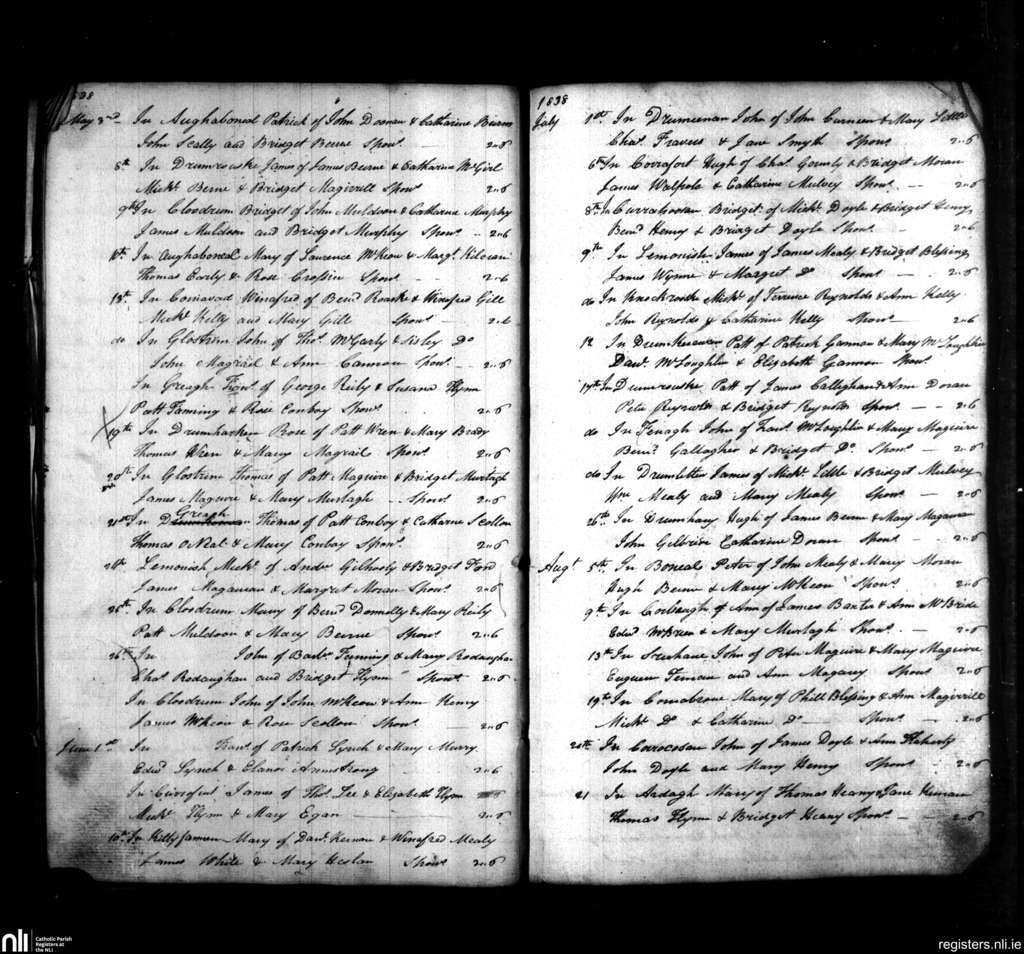 1838
May 3rd In Aughaboneal Patrick of John Doonan & Catharine Beirne
John Scally and Bridget Beirne Spons. 2 " 6
8th In Drumrouske James of James Beirne & Catharine McGirl
Michl. Berne & Bridget Magivrill Spons. 2 " 6
9th In Cloodrum Bridget of John Muldoon & Catharne Murphy
James Muldoon and Bridget Murphy Spons. 2 " 6
11th In Aughaboneal Mary of Laurence McKeon & Margt. Kilcran
Thomas Early & Rose Spons. 2 " 6
18th In Winefred of Bernd. Roarke & Winefred Gill
Michl. Kelly and Mary Gill Spons. 2 " 6
do In Glostrim John of Thos. McGarty & Sisley Do
John Magrail & Ann Cannon Spons. 2 " 6
In Greagh Frans. of George Reily & Susana Flynn
Patt Fanning & Rose Conboy Spons. 2 " 6
19th In Drumharkin Rose of Patt Wren & Mary Brady
Thomas Wren & Mary Magrail Spons. 2 " 6
20th In Glostrim Thomas of Patt Maguire & Bridget Murtagh
James Maguire & Mary Murtagh Spons. 2 " 6
Greagh
21st In Thomas of Patt Conboy & Catharne Scollon
Thomas O Neal & Mary Conboy Spons. 2 " 6
24th Lemonish Michl. of Andw Gilhooly & Bridget Ford
James Magaurean & Margret Moran Spons. 2 " 6
25th In Cloodrum Mary of Bernd Donnolly & Mary Reily
Patt Muldoon & Mary Beirne Spons. 2 " 6
26th In John of Fanning & Mary Rodaughan
Chas. Rodaughan and Bridget Flynn Spons. 2 " 6
In Cloodrum John of John McKeon & Ann Henry
James McKeon & Rose Scollon Spons. 2 " 6
June 1st In Frans. of Patrick Lynch & Mary Murry
Edwd Lynch & Elanor Armstrong 2 " 6
In James of Thos. Lee & Elizabeth Flynn
Michl. Flynn & Mary Egan 2 " 6
10th In Mary of Danl. Kernan & Winefred Mealy
James White & Mary Heslan Spons. 2 " 6
1838
July 1st In Drumcunan John of John Curneen & Mary Siddle
Chas. Travers & Jane Smyth Spons. 2 " 6
6th In Corrafort Hugh of Chas. Gormly & Bridget Moran
James Walpole & Catharine Mulvey Spons. 2 " 6
8th In Currahoolan Bridget of Michl. Doyle & Bridget Henry
Bernd Henry & Bridget Doyle Spons. 2 " 6
9th In Lemonish James of James Mealy & Bridget Blessing
James Wynne & Margret Do Spons. 2 " 6
do In Michl. of Terrence Reynolds & Ann Kelly
John Reynolds & Catharine Kelly Spons. 2 " 6
12 In Patt of Patrick Gannon & Mary McLoughlin
Danl. McLoughlin & Elizabeth Gannon Spons.
17th In Drumrouske Patt of James Callaghan & Ann Doran
Peter Reynolds & Bridget Reynolds Spons. 2 " 6
do In Fenagh John of Frans. McLoughlin & Mary Maguire
Bernd. Gallagher & Bridget Do. Spons. 2 " 6
do In James of Michl. & Bridget Mulvey
Wm. Mealy and Mary Mealy Spons. 2 " 6
26th In Drumhany Hugh of James Beirne & Mary Magauran
John Gilbride Catharine Doran Spons. 2 " 6
Augt 5th In Boneal Peter of John Mealy & Mary Moran
Hugh Beirne & Mary McKeon Spons. 2 " 6
9th In Ann of James Baxter & Ann McBride
Edwd McBrien & Mary Murtagh Spons. 2 " 6
13th In John of Peter Maguire & Mary Maguire
Eugene and Ann Magaury Spons. 2 " 6
19th In Mary of Phill Blessing & Ann Magivrill
Michl. Do & Catharine Do Spons. 2 " 6
20th In John of James Doyle & Ann Flaherty
John Doyle and Mary Henry Spons. 2 " 6
21 In Ardagh Mary of Thomas Heany & Jane
Thomas Flynn & Bridget Heany Spons. 2 " 6
nli
Catholic Parish
Registers at
the NLI
registers.nli.ie